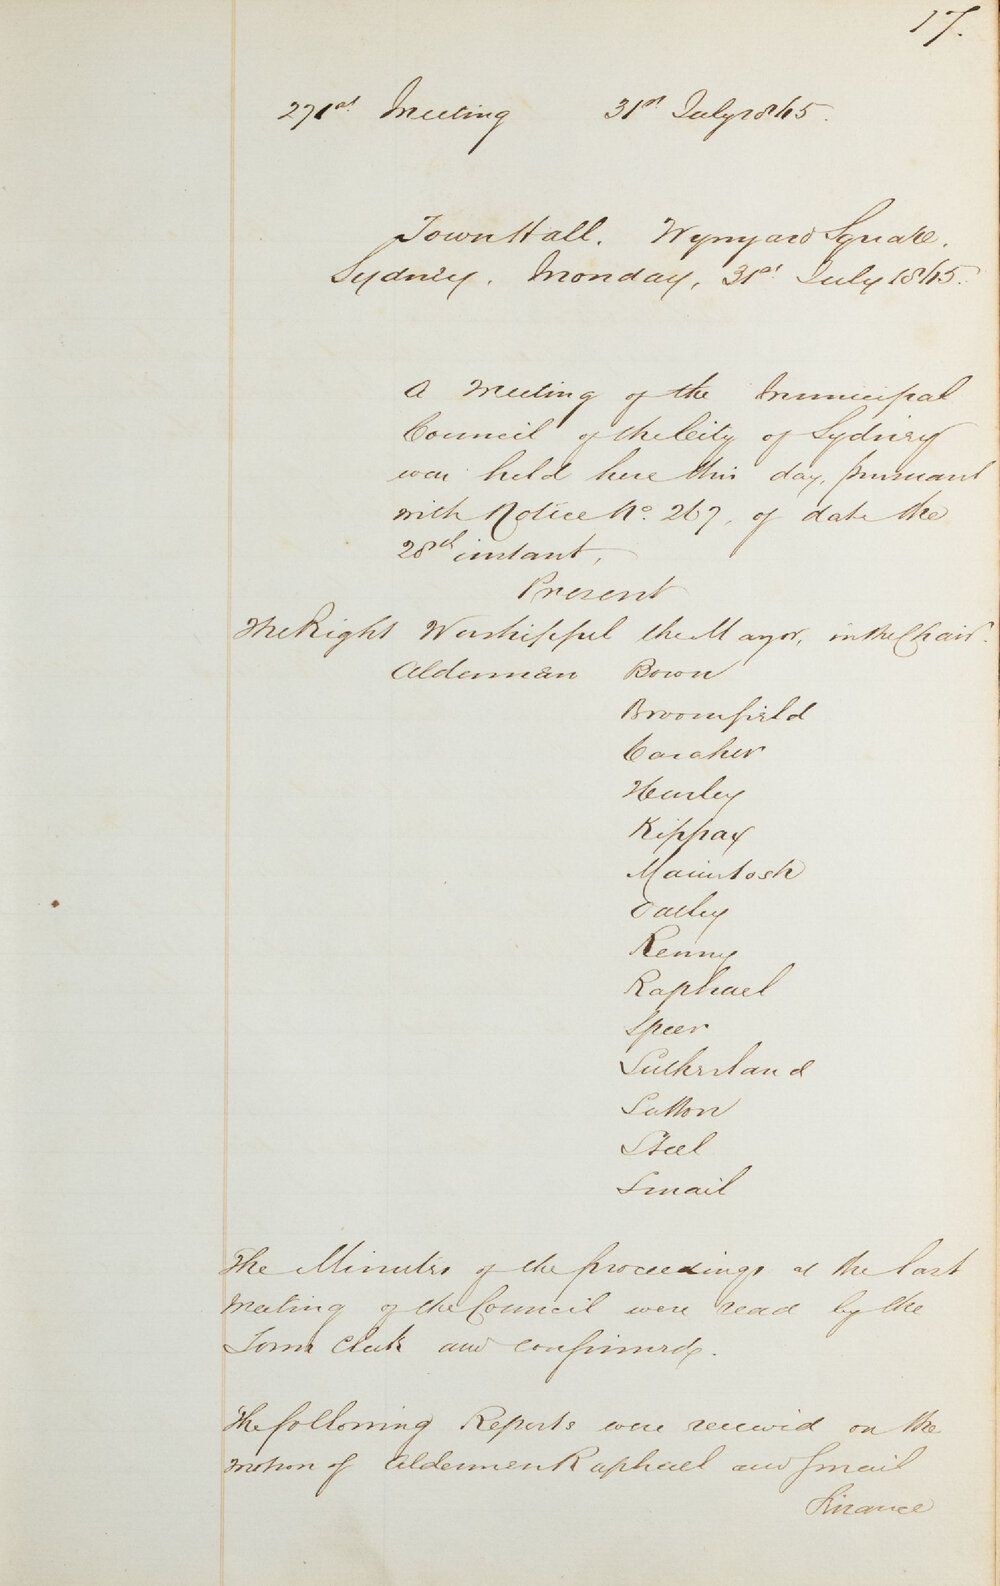 17.
271st Meeting 31st July 1865.
Town Hall. Wynyard Square.
Sydney. Monday, 31st July 1865.
A Meeting of the Municipal
Council of the City of Sydney
was held here this day, pursuant
with Notice No. 267, of date the
28th instant,
Present
The Right Worshipful the Mayor, in the Chair.
Aldermen Bown
Broomfield
Caraher
Hurley
Kippax
Macintosh
Oatley
Renny
Raphael
Speer
Sutherland
Sutton
Steel
Smail
The Minutes of the proceedings at the last
Meeting of the Council were read by the
Town Clerk and confirmed.
The following Reports were received on the
motion of Aldermen Raphael and Smail
Finance